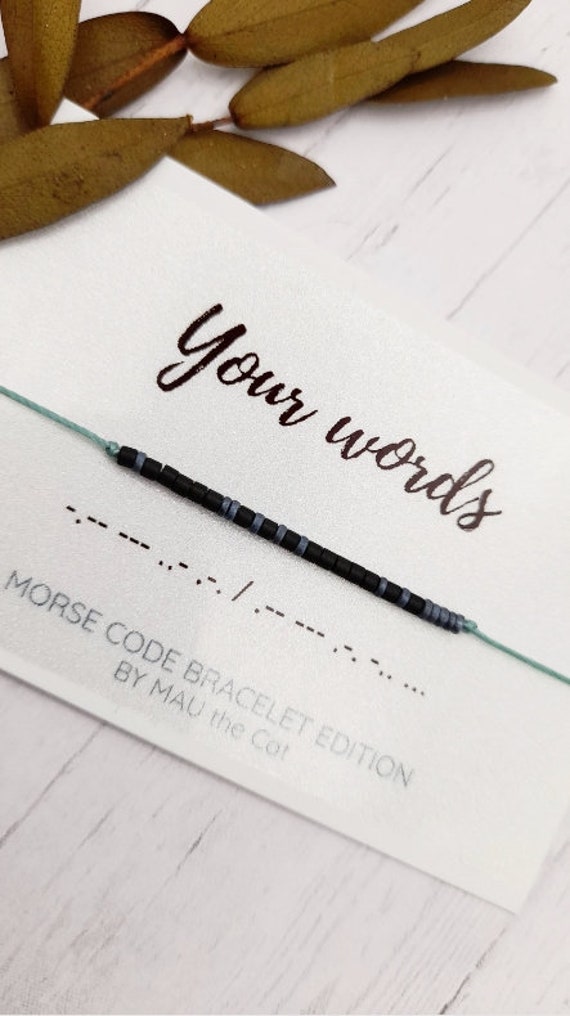 Your words
-.-- --- ..- .-. / .-- --- .-. -.. ...
MORSE CODE BRACELET EDITION
BY MAU the Cat